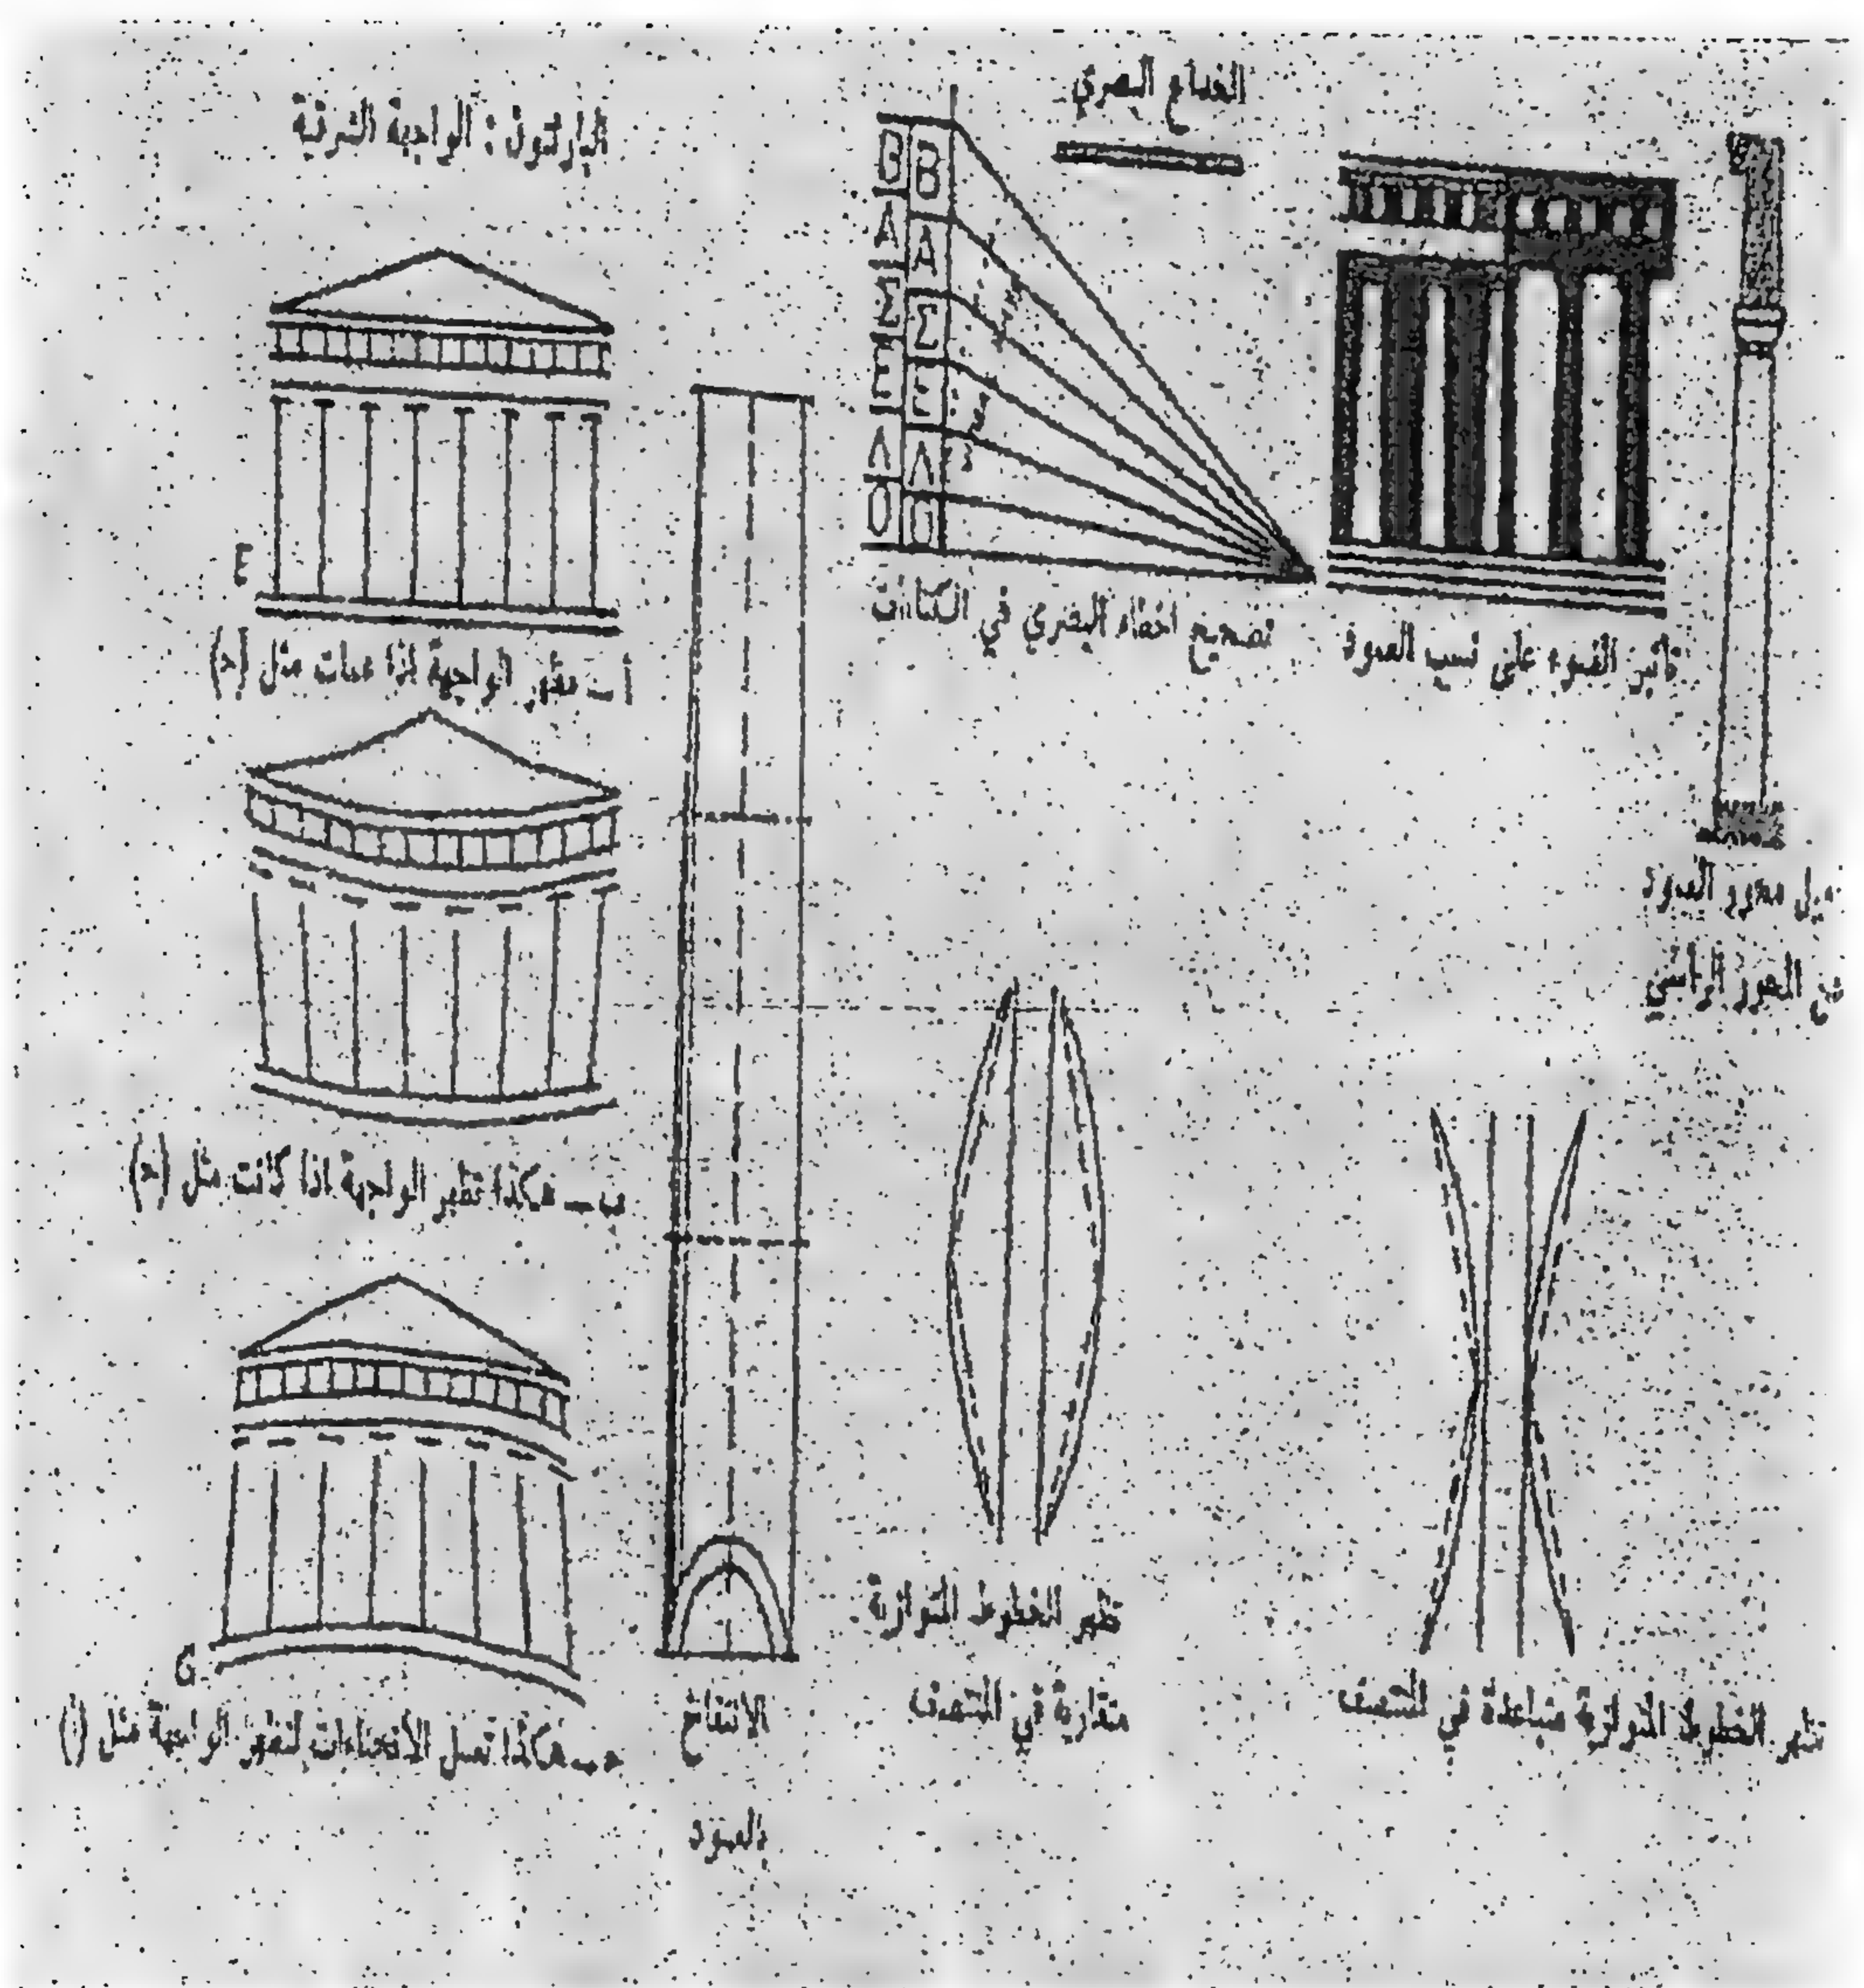 الخداع البصري
البارثنون : الواجهة الشرقية
B B
A A
Σ Σ
E E
Λ Λ
O O
تصحيح اخطاء البصري في الكتابات
تأثير الضوء على نسب العمود
ميل محور العمود
عن المحور الرأسي
E
أ ــ منظور الواجهة إذا عملت مثل (ح)
ب ــ هكذا تظهر الواجهة اذا كانت مثل
G
حـ ــ هكذا تعمل الأنحناءات لتظهر الواجهة مثل (أ)
الانتفاخ
بالعمود
تظهر الخطوط المتوازية
متقاربة في المنتصف
تظهر الخطوط المتوازية متباعدة في المنتصف